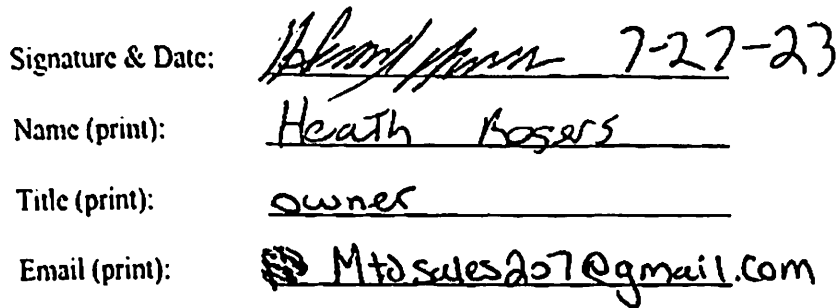 Signature & Date: 7-27-23
Name (print): Heath Rogers
Title (print): owner
Email (print): Mtdsales207@gmail.com